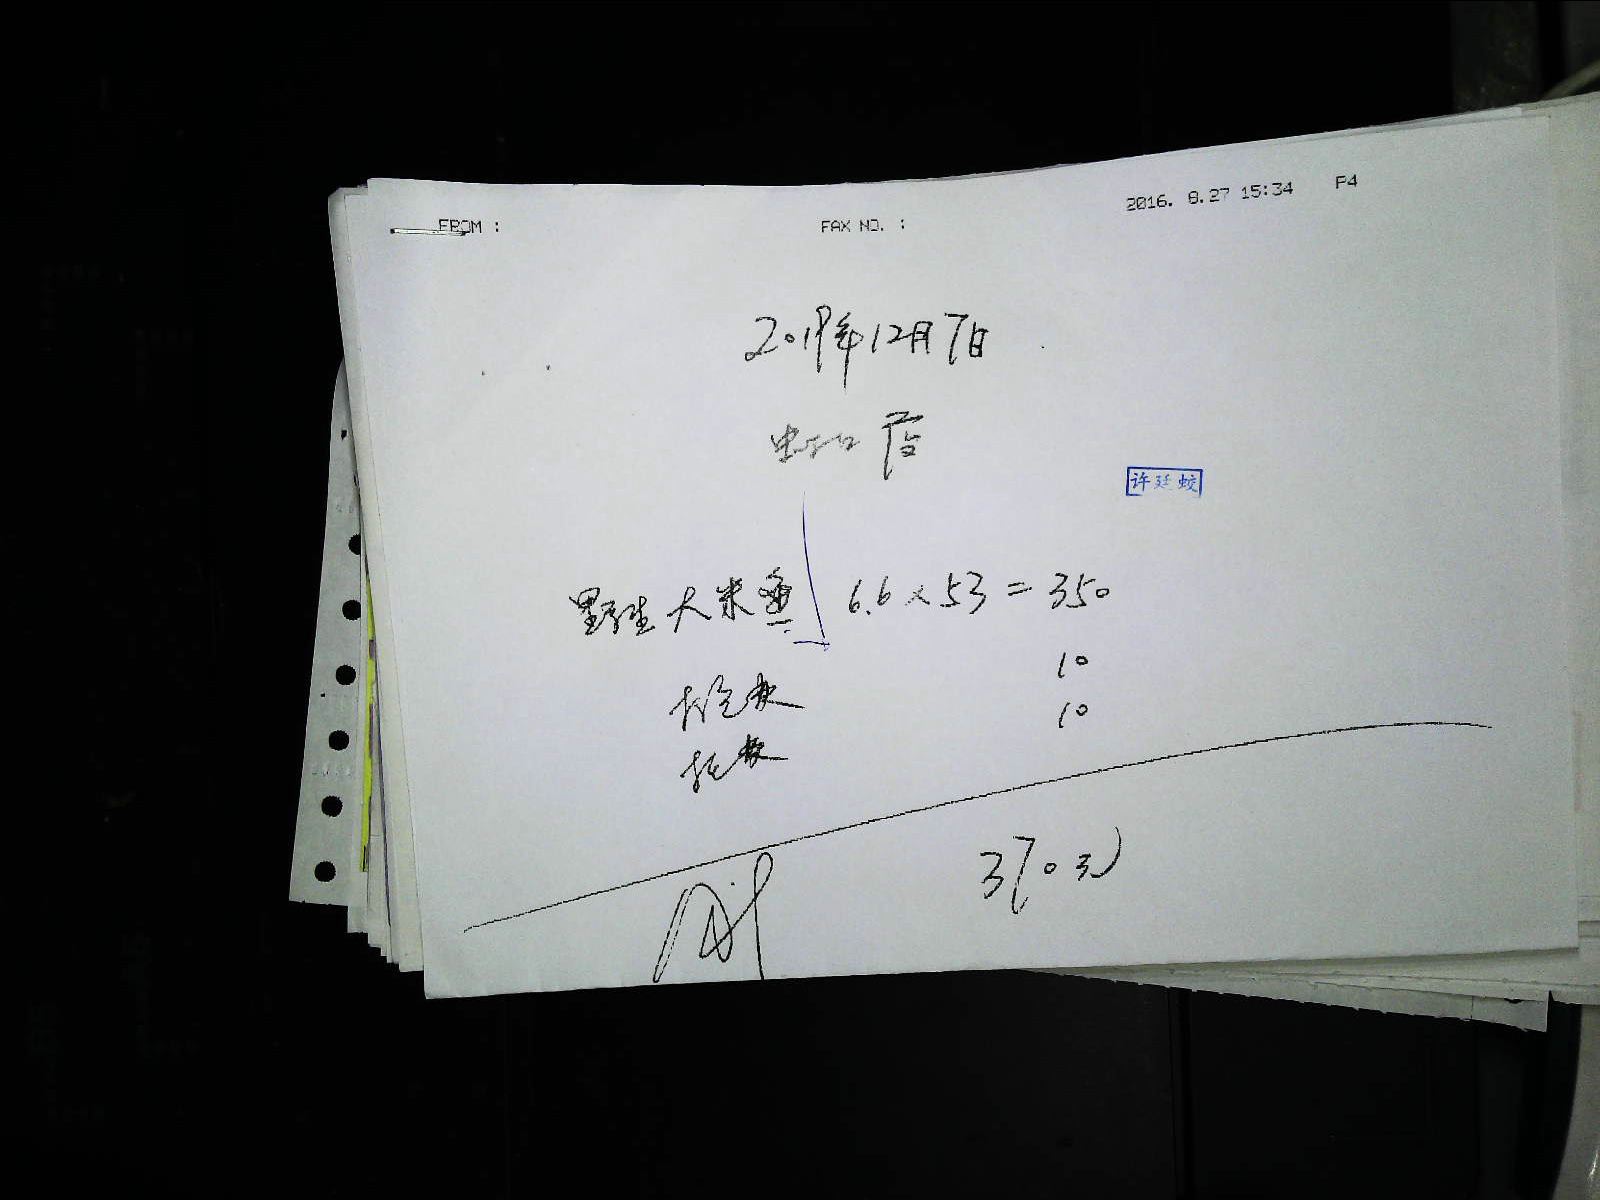 FROM :
FAX NO. :
2016. 8.27 15:34 P4
2019年12月7日
虹口店
许廷蛟
野生大米鱼 6.6×53=350
10
10
370元